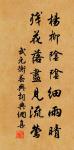 楊柳陰陰細雨晴
殘花落盡見流鶯
武元衡春興詞典網